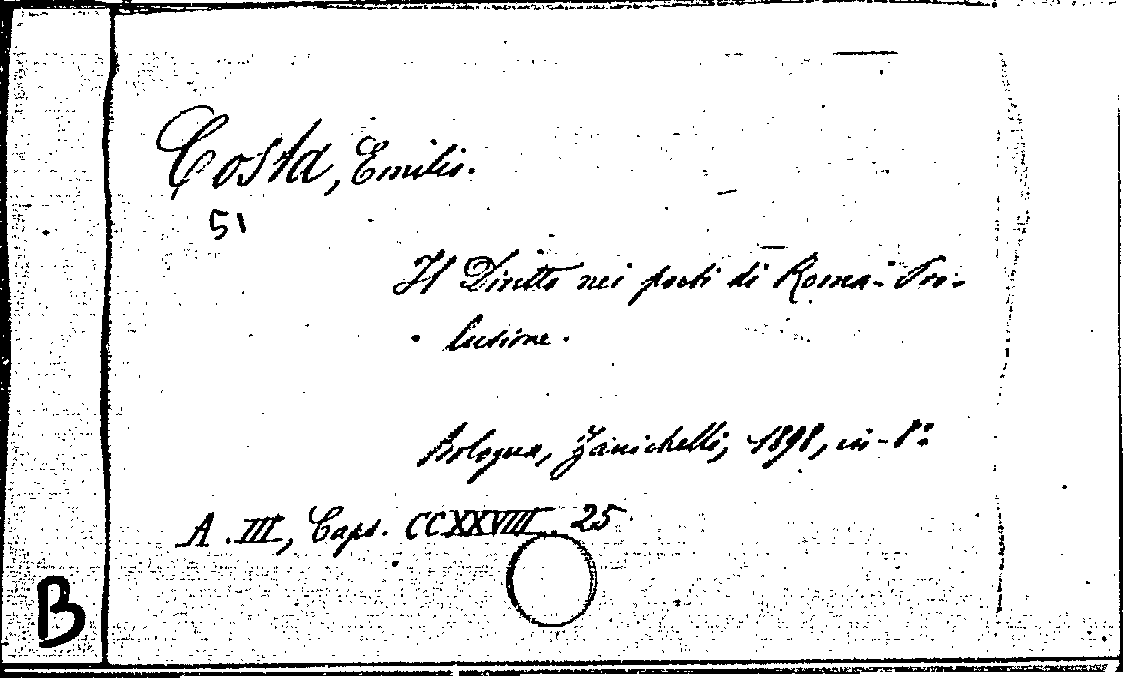 Costa, Emilio.
51
Il Diritto nei poeti di Roma - Pro-
lusione.
Bologna, Zanichelli, 1898, in-8°
A. III, Caps. CCXXVIII. 25
B